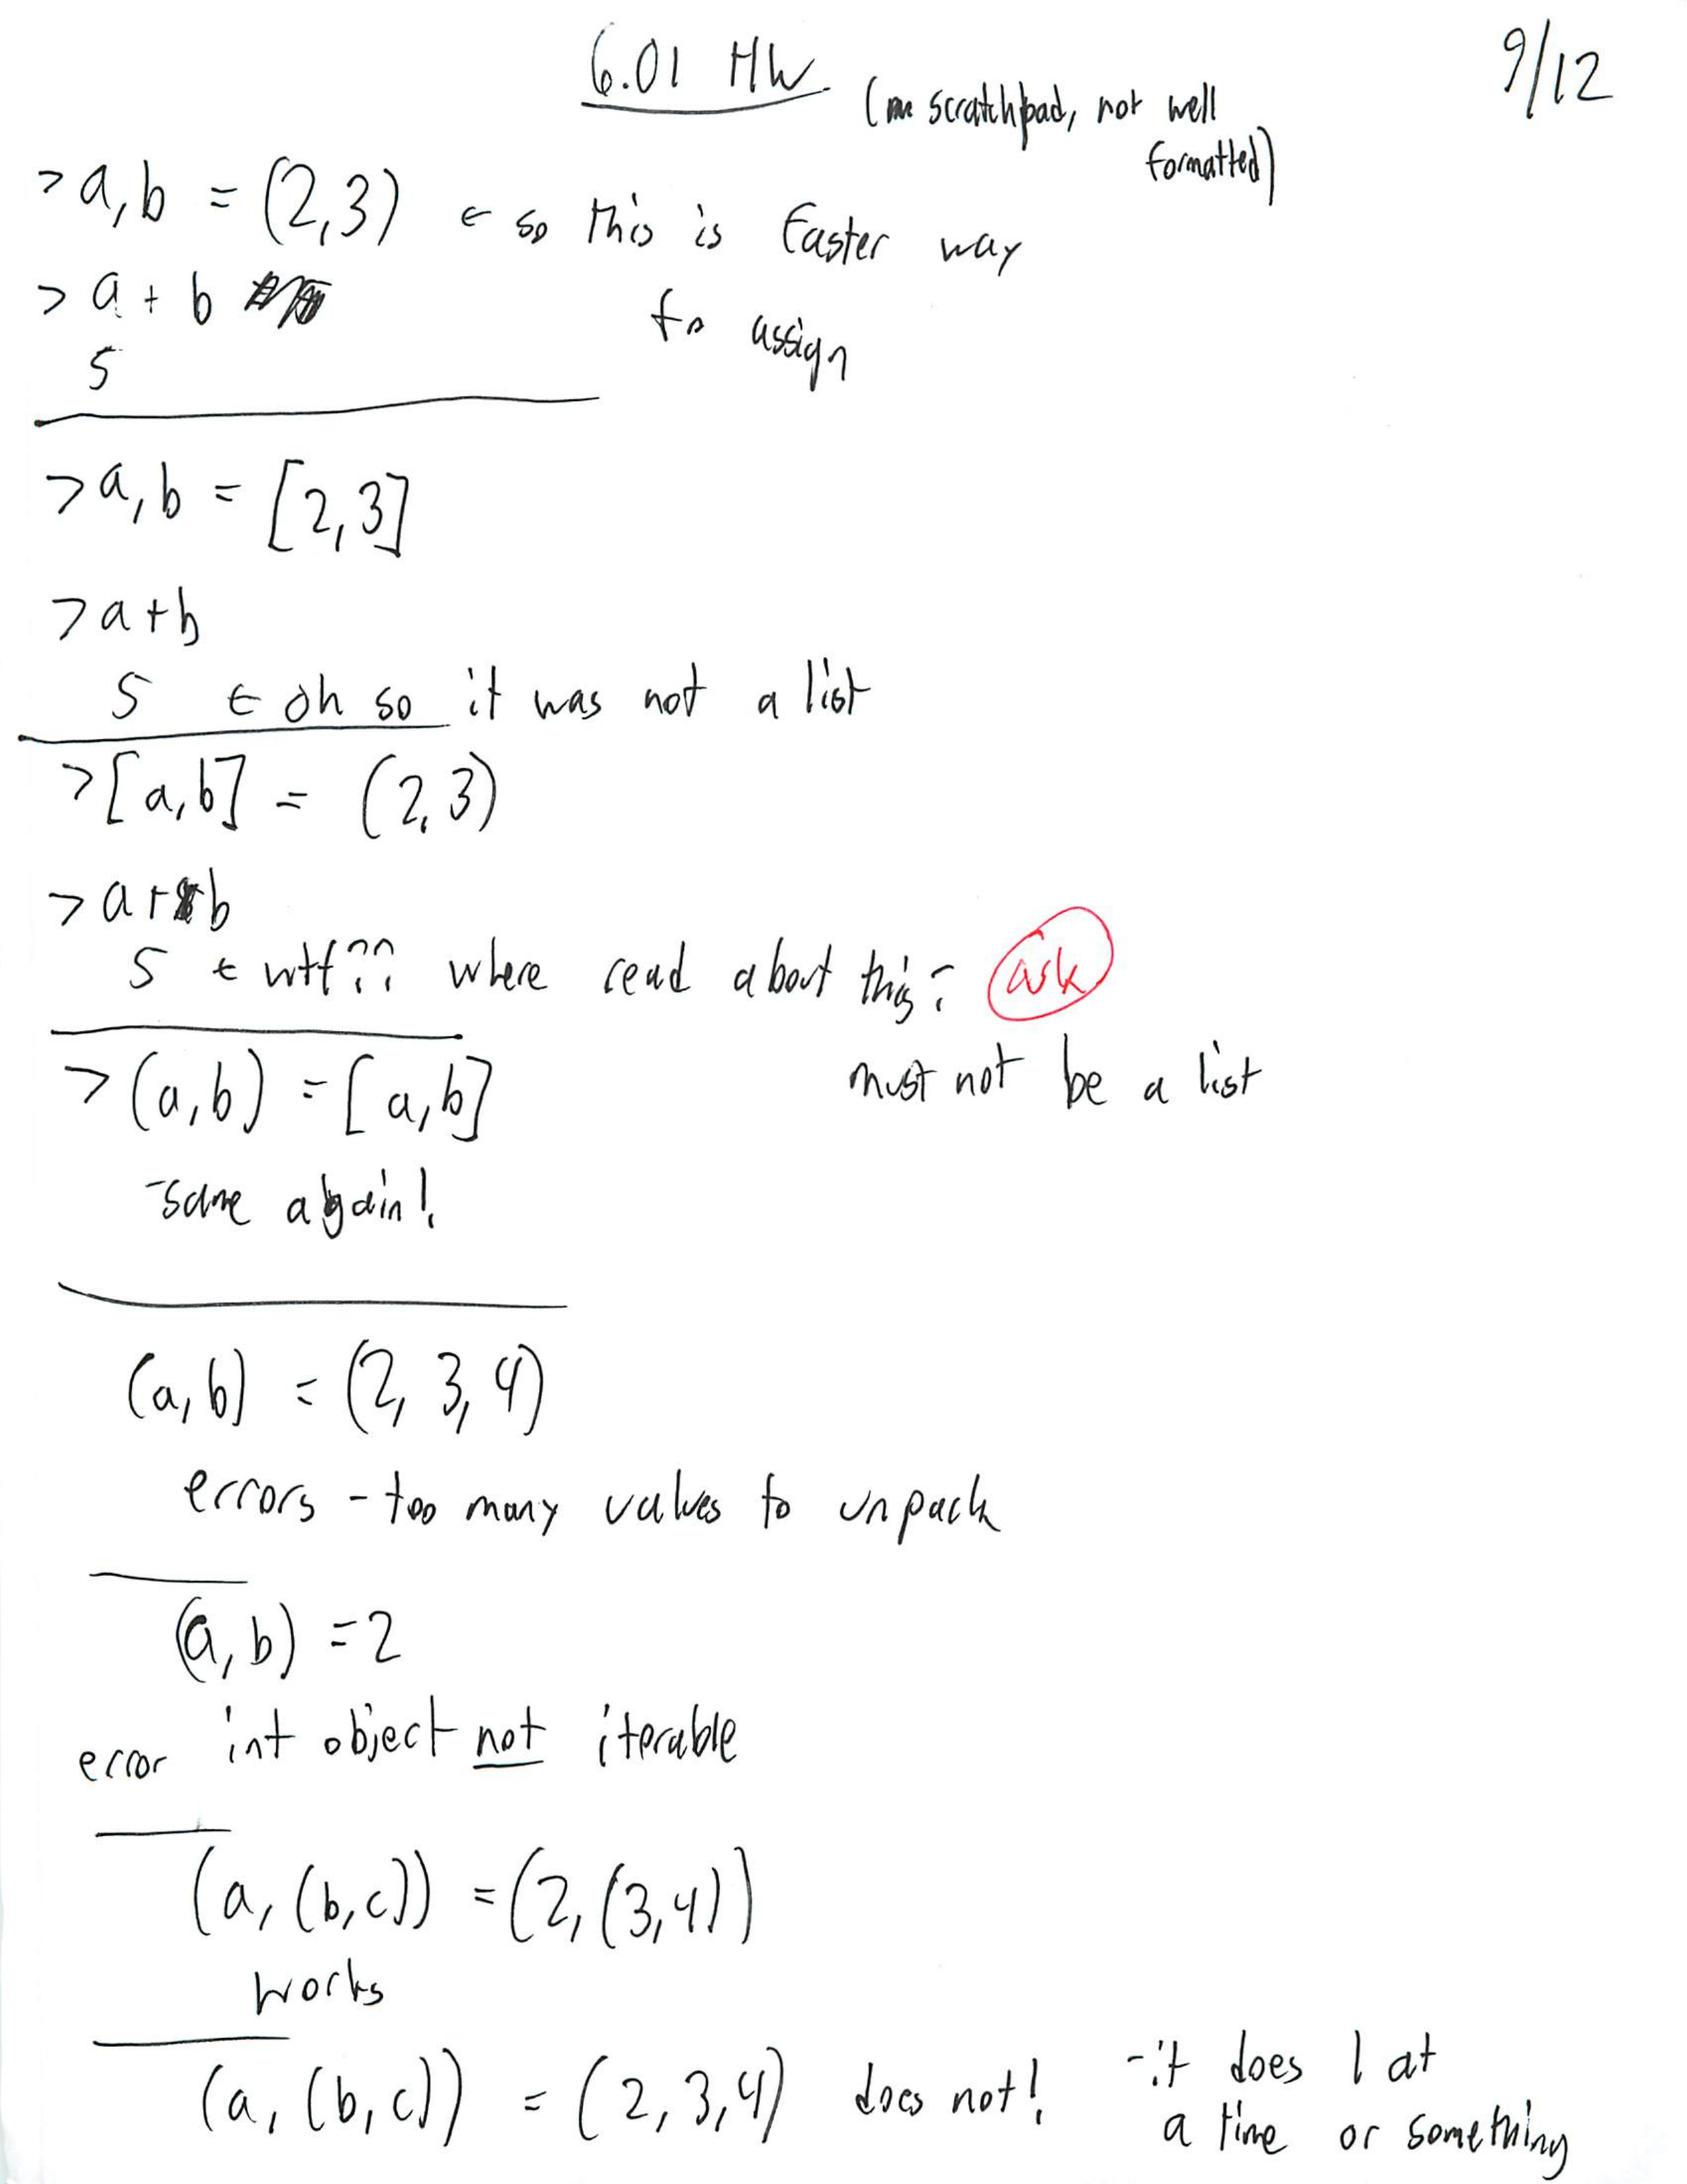 6.01 HW
9/12
(scratchpad, not well
formatted)
> a, b = (2,3) ← so this is faster way
to assign
> a + b
5
> a, b = [2,3]
> a+b
5 ← oh so it was not a list
> [a,b] = (2,3)
> a+b
5 ← wtf?? where read about this? ask
must not be a list
> (a,b) = [a,b]
- same again!
(a,b) = (2, 3, 4)
errors - too many values to unpack
(a, b) = 2
error int object not iterable
(a, (b,c)) = (2, (3,4))
works
(a, (b,c)) = (2, 3, 4) does not!
- it does 1 at
a time or something